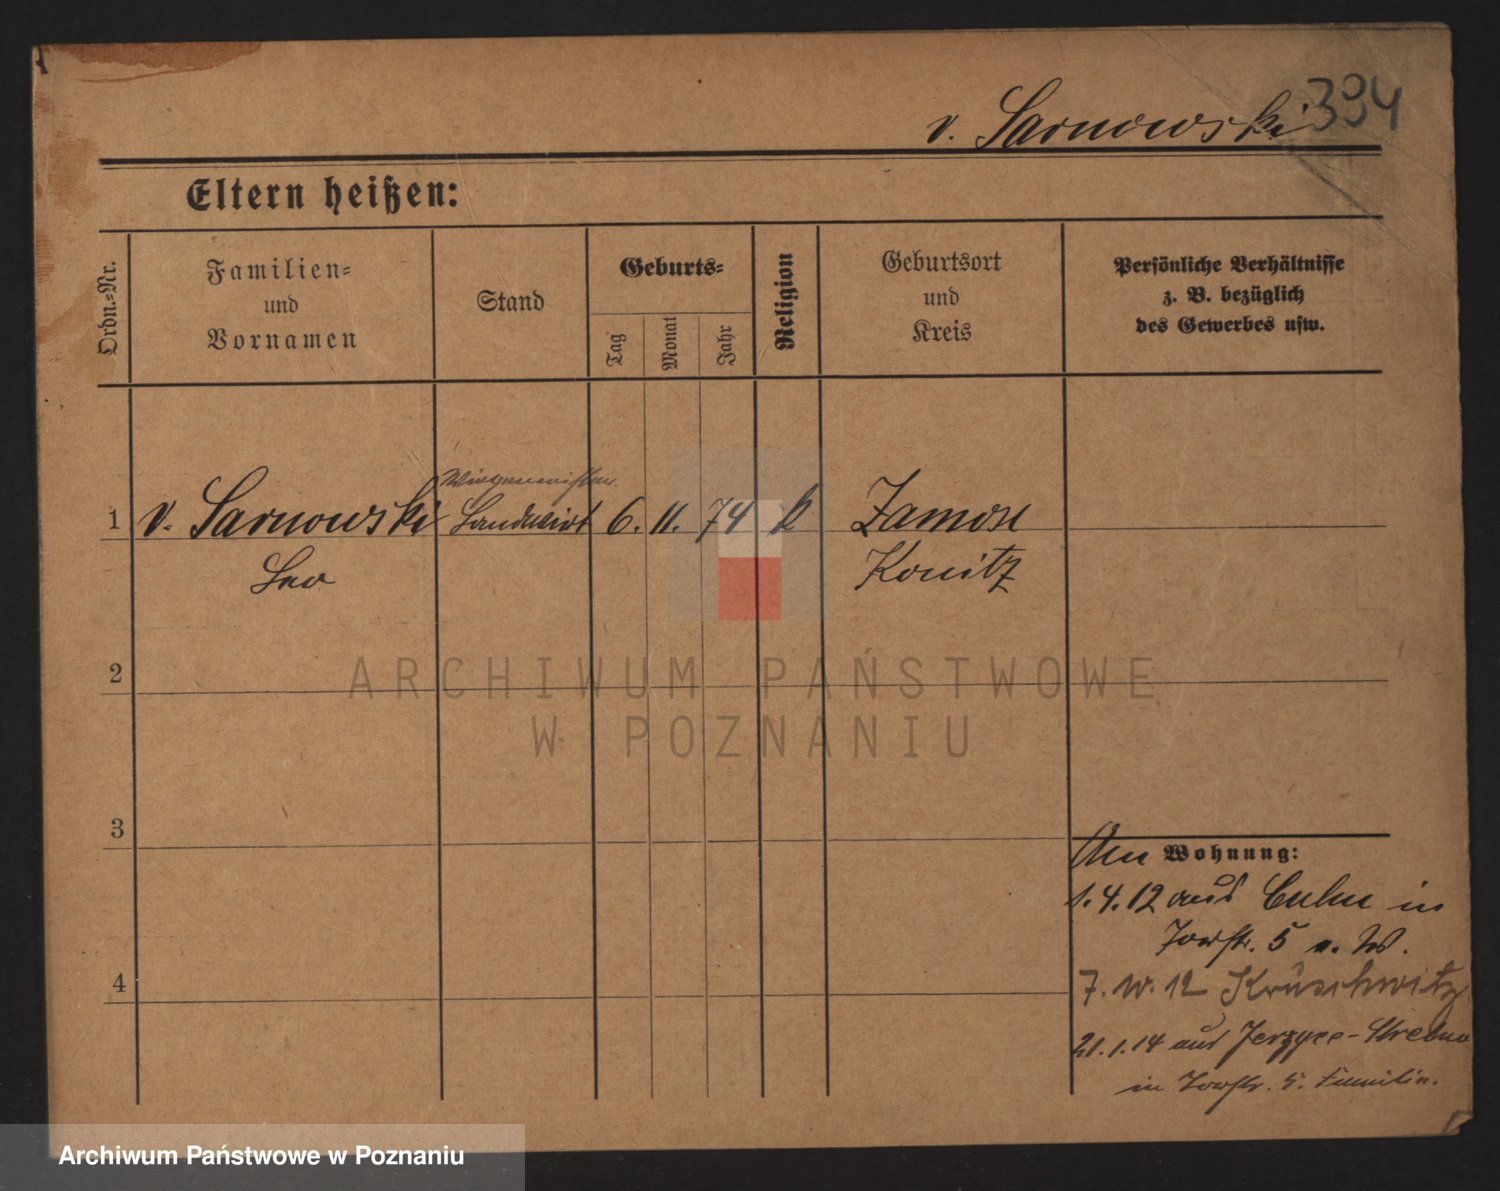 v. Sarnowski 394
Eltern heißen:
Ordn.-Nr.
Familien-
und
Vornamen
Stand
Geburts-
Tag
Monat
Jahr
Religion
Geburtsort
und
Kreis
Persönliche Verhältnisse
z. B. bezüglich
des Gewerbes usw.
1 v. Sarnowski Landwirt 6. 11. 74 k Zamosc
Leo Konitz
2
3
4
Wohnung:
1.4.12 aus Culm in
5
12 Kruschwitz
21.1.14 aus
in 5. Familie.
ARCHIWUM PAŃSTWOWE
W POZNANIU
Archiwum Państwowe w Poznaniu